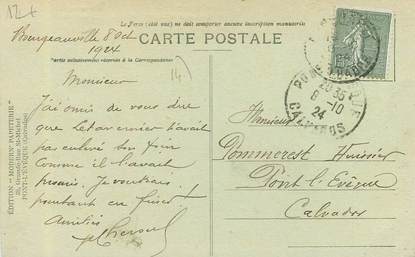 12+
Le Recto (côté vue) ne doit comporter aucune inscription manuscrite
CARTE POSTALE
Partie exclusivement réservée à la Correspondance
Bourgeauville 8 Oct
1924
(14)
Monsieur
J'ai omis de vous dire
que n'avait
pas enlevé son foin
comme il l'avait
promis. Je voudrais
pourtant en finir!
Amitiés
ÉDITION "MODERN PAPETERIE"
25, Grande-Rue St-Michel
PONT-L'ÉVÊQUE (Calvados)
PONT-L'EVEQUE
20 35
8 -10
24
CALVADOS
Monsieur
Pommerest Huissier
Pont l'Evêque
Calvados